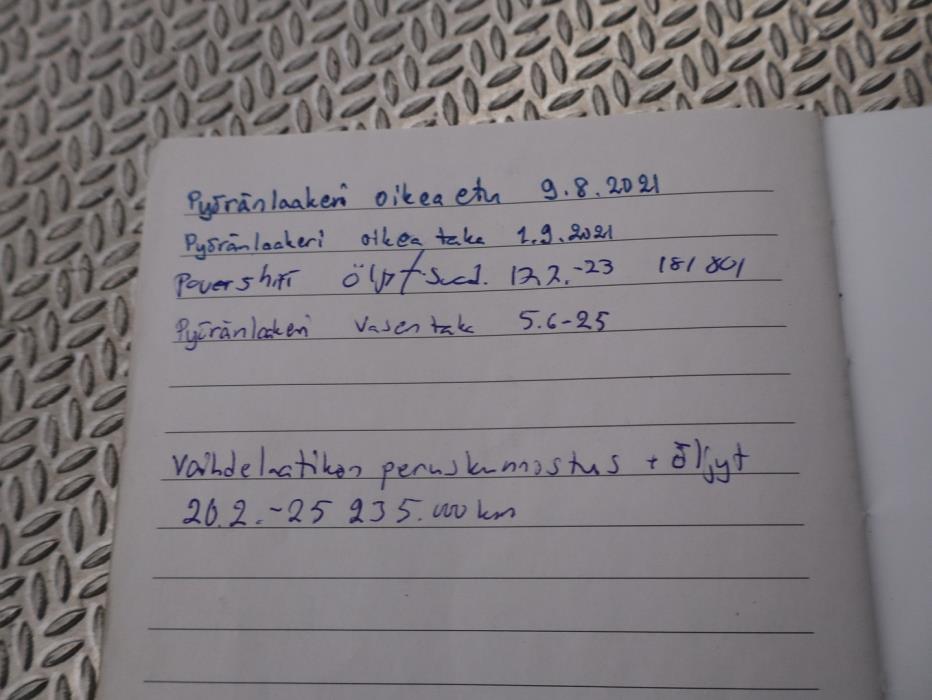 Pyöränlaakeri oikea etu 9.8.2021
Pyöränlaakeri oikea taka 1.9.2021
Powershift Öljyt + Suod. 17.2.-23 181 801
Pyöränlaakeri Vasen taka 5.6-25
Vaihdelaatikon peruskunnostus + öljyt
20.2.-25 235.000 km